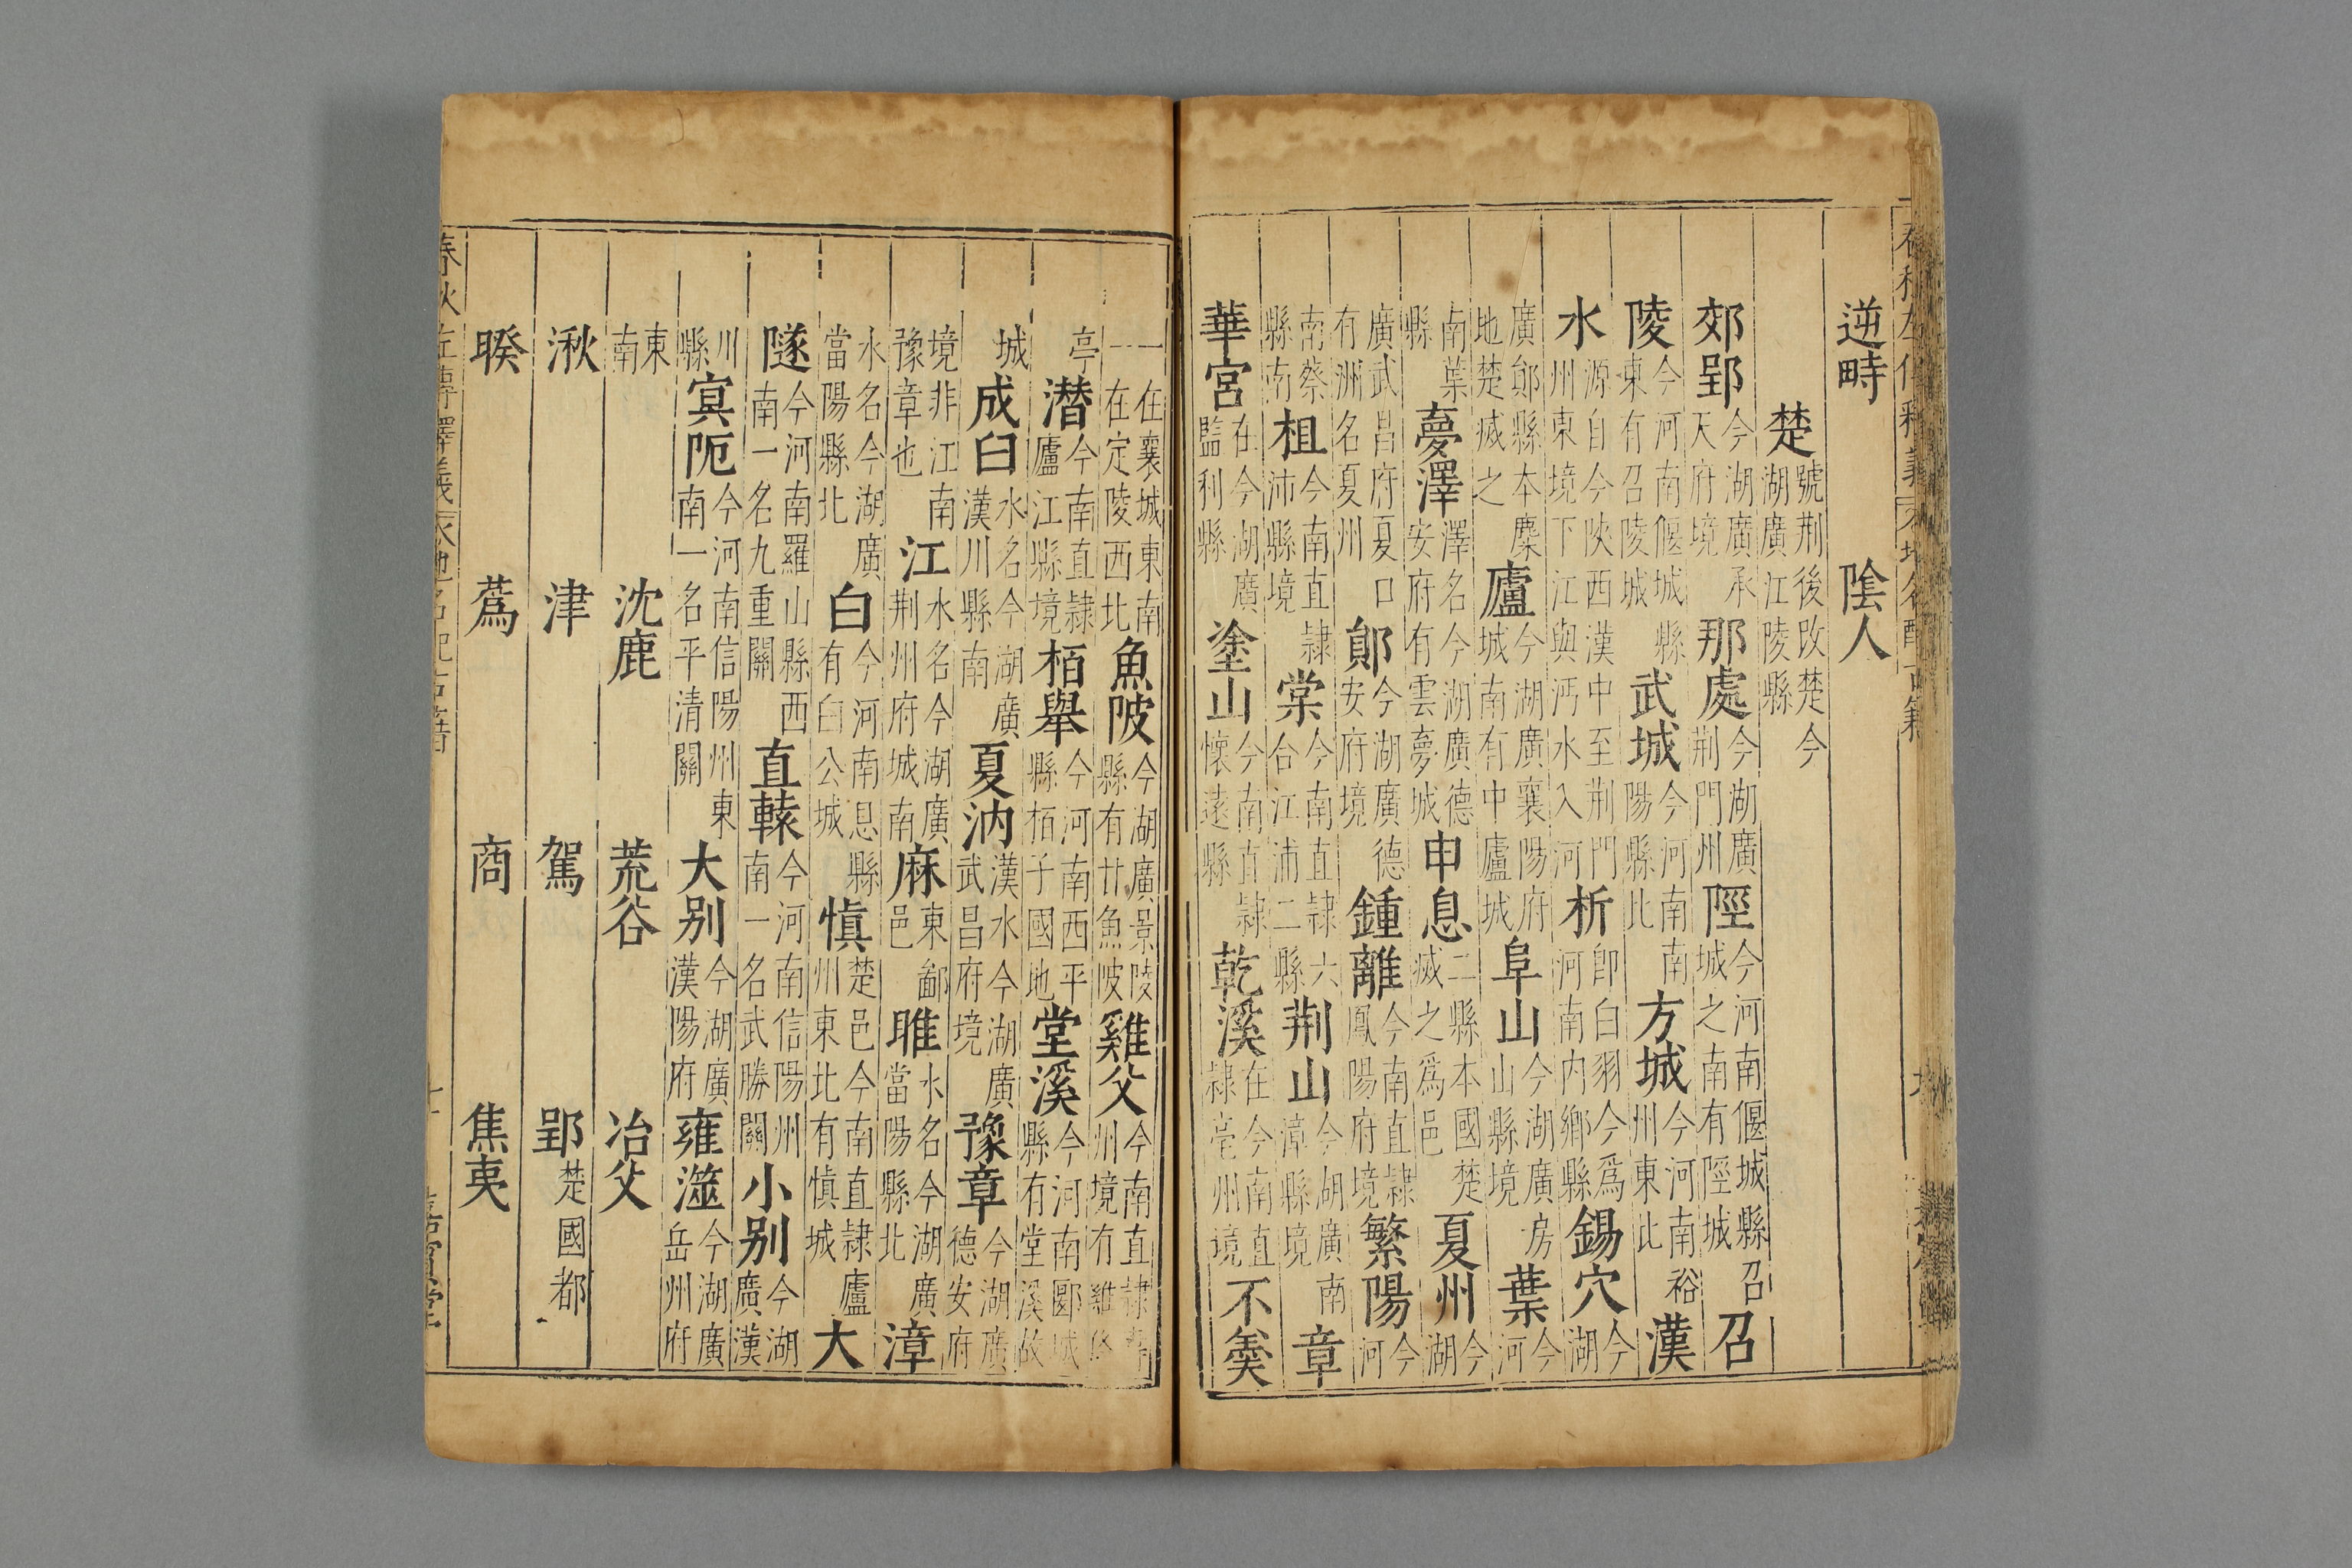 逆畤 陰人
楚 號荆後改楚今湖廣江陵縣
郊郢 今湖廣承天府境 那處 今湖廣荆門州 陘 今河南偃城縣召城之南有陘城 召
陵 今河南偃城縣東有召陵城 武城 今河南南陽縣北 方城 今河南裕州東北 漢
水 源自今陜西漢中至荆門州東境下江與沔水入河 析 卽白羽今爲河南内鄉縣 錫穴 今湖
廣鄖縣本麋地楚滅之 廬 今湖廣襄陽府城南有中廬城 阜山 今湖廣房山縣境 葉 今河
南葉縣 夢澤 澤名今湖廣德安府有雲夢城 申息 二縣本國楚滅之爲邑 夏州 今湖
廣武昌府夏口有洲名夏州 鄖 今湖廣德安府境 鍾離 今南直隸鳳陽府境 繁陽 今河
南蔡縣南 柤 今南直隸沛縣境 棠 今南直隸六合江浦二縣 荆山 今湖廣南漳縣境 章
華宮 在今湖廣監利縣 塗山 今南直隸懷遠縣 乾溪 在今南直隸亳州境 不羮
一在襄城東南一在定陵西北 魚陂 今湖廣景陵縣有甘魚陂 雞父 今南直隸壽州境有雞俻
亭 潛 今南直隸廬江縣境 栢舉 今河南西平縣栢子國地 堂溪 今河南郾城縣有堂溪故
城 成臼 水名今湖廣漢川縣南 夏汭 漢水今湖廣武昌府境 豫章 今湖廣德安府
境非江南豫章也 江 水名今湖廣荆州府城南 麻 東鄙邑 雎 水名今湖廣當陽縣北 漳
水名今湖廣當陽縣北 白 今河南息縣有白公城 慎 楚邑今南直隸廬州東北有慎城 大
隧 今河南羅山縣西南一名九重關 直轅 今河南信陽州南一名武勝關 小别 今湖廣漢
川縣 寘阨 今河南信陽州東南一名平清關 大别 今湖廣漢陽府 雍澨 今湖廣岳州府
東南 沈鹿 荒谷 冶父
湫 津 駕 郢 楚國都
暌 蔿 商 焦夷